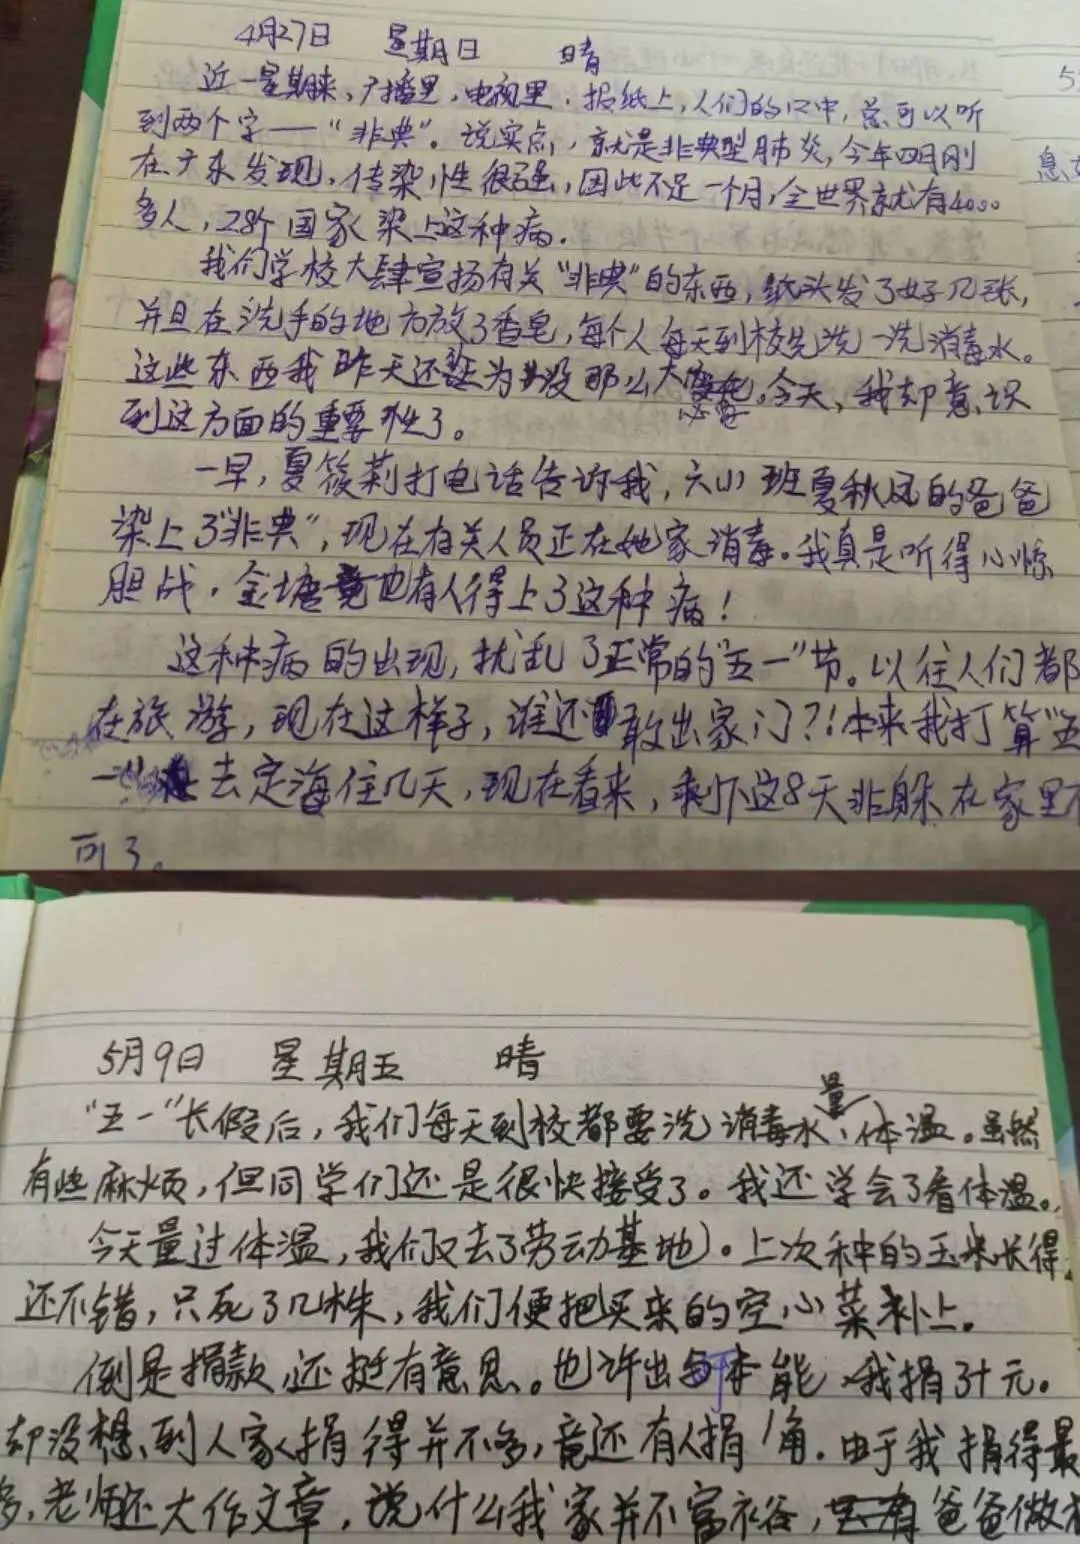 4月27日 星期日 晴
近一星期来,广播里,电视里,报纸上,人们的口中,总可以听
到两个字——“非典”。说实点,就是非典型肺炎,今年四月刚
在广东发现,传染性很强,因此不足一个月,全世界就有4000
多人,28个国家染上这种病.
我们学校大肆宣扬有关“非典”的东西,纸头发了好几张,
并且在洗手的地方放了香皂,每个人每天到校先洗一洗消毒水。
这些东西我昨天还认为没那么大必要。今天,我却意识
到这方面的重要性了。
一早,夏筱莉打电话告诉我,六(1)班夏秋凤的爸爸
染上了“非典”,现在有关人员正在她家消毒。我真是听得心惊
胆战,金塘竟也有人得上了这种病!
这种病的出现,扰乱了正常的“五一”节。以往人们都
在旅游,现在这样子,谁还敢出家门?!本来我打算“五
一”去定海住几天,现在看来,剩下这8天非躲在家里不
可了。
5
息
5月9日 星期五 晴
“五一”长假后,我们每天到校都要洗消毒水、量体温。虽然
有些麻烦,但同学们还是很快接受了。我还学会了看体温。
今天量过体温,我们又去了劳动基地。上次种的玉米长得
还不错,只死了几株,我们便把买来的空心菜补上。
倒是捐款,还挺有意思。也许出于本能,我捐了十元。
却没想到人家捐得并不多,竟还有人捐1角.由于我捐得最
多,老师还大作文章,说什么我家并不富裕,只有爸爸做